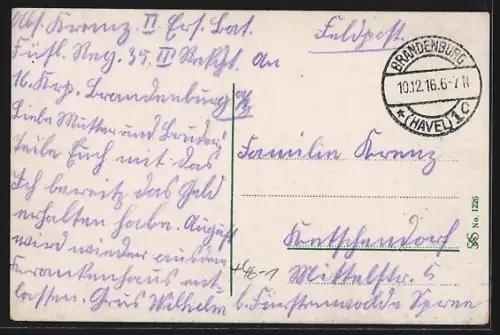 Abs. Krenz. II. Ers. Bat.
Füsl. Reg. 35. III Rekr.
16. Krp. Brandenburg a/H
Liebe Mutter und Bruder!
Teile Euch mit das
Ich bereitz das Geld
erhalten habe. August
wird wieder aus den
Krankenhaus ent-
lassen. Grus Wilhelm
Feldpost.
BRANDENBURG
10.12.16.6-7 N
* (HAVEL) 1c
Familie Krenz
Ketschendorf
Mittelstr. 5
b. Fürstenwalde Spree
No. 1226